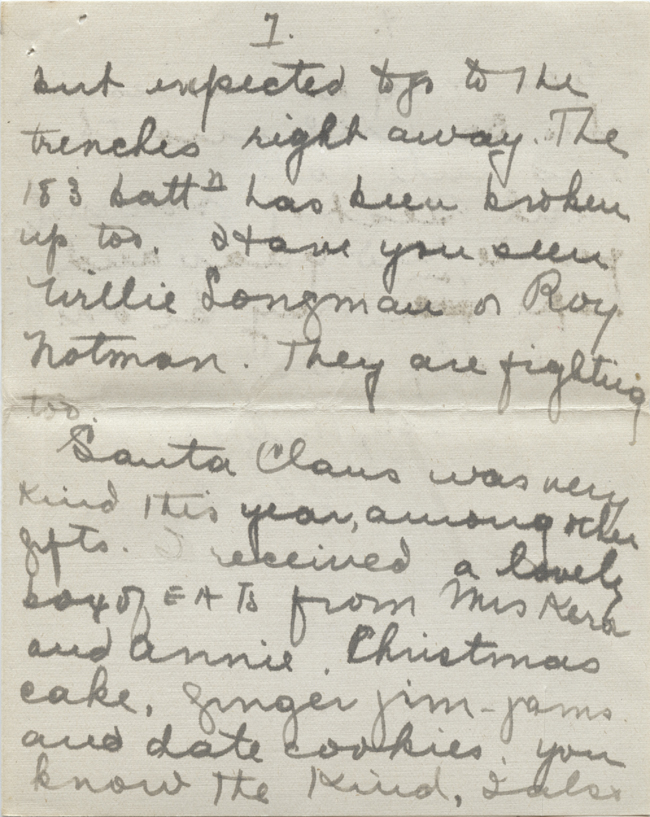 7.
but expected to go to the
trenches right away. The
183 battn has been broken
up too. Have you seen
Willie Longman or Roy
Notman. They are fighting
too.
Santa Claus was very
kind this year, among other
gifts. I received a lovely
box of EATS from Mrs
and Annie. Christmas
cake, ginger jim-jams
and date cookies, you
know the kind, I also